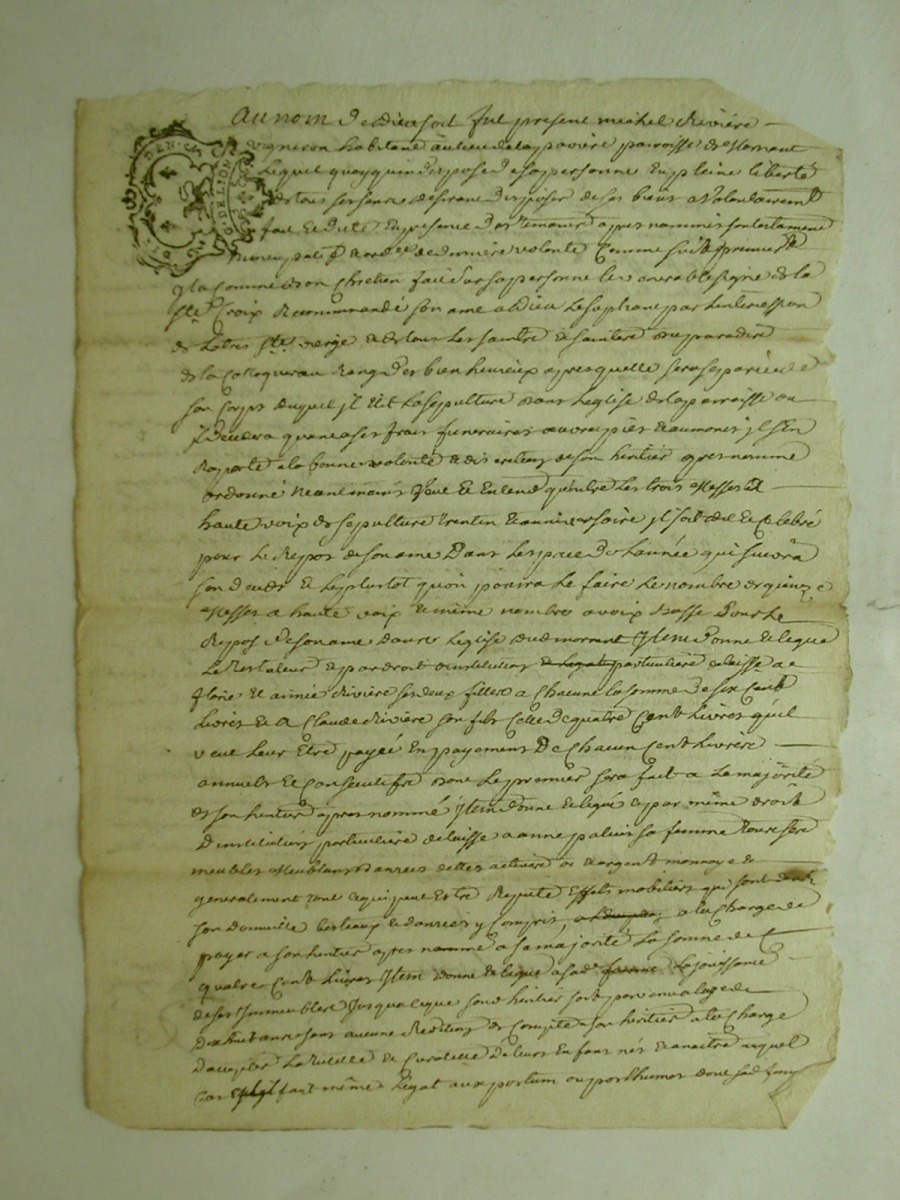 Au nom de Dieu soit fut present michel Riviére
vigneron habitant au lieu de la paviére parroisse de Mornant
Lequel quoyque indisposé de sa personne En pleine liberté
de tous ses sens desirant disposer de ses biens a Volontairemt
fait Et dicté En presence des temoins apres nommés son testament
nuncupatif et ordce de derniere volonté Comme suit premiert
Comme bon Chretien fait sur sa personne le venerable signe de la
Ste Croix Recommandé son ame a Dieu Le supliant par L'intercession
de La tres Ste vierge et de tous Les saints et saintes du paradis
de la Colloquer au Rang des bien heureux apres quelle sera separée de
son Corps duquel jl Elit La sepulture dans L'eglise de la parroisse ou
jl Decedera quant a ses frais funeraires œuvres pies et aumones jl s'En
Raporte a la bonne volonté et discretion de son heritier apres nommé
ordonné Neantmoins Veut Et Entend qu'outre Les trois Messes a
haute voix de sepulture trentin et anniversaire jl soit dit Et Celebré
pour Le Repos de son ame Dans L'espace de L'année qui suivra
son Deceds Et Le plustot qu'on pourra Le faire Le nombre de quinze
Messes a haute voix Et même nombre a voix Basse Pour Le
Repos de son ame dans L'eglise dud mornant Jtem Donne Et legue
Le testateur et par droit d'institution et Legat particuliere delaisse a
Et aimée Riviére ses deux filles a Chacune la somme de six Cent
Livres Et A Claude Riviére son fils Celle de quatre Cent Livres qu'il
veut leur Etre payée En payements De Chacun Cent Livres
annuels Et Consecutifs dont Le premier sera fait a La majorité
de son heritier apres nommé Jtem Donne Et legue et par même droit
D'institution particuliere delaisse a anne sa femme tous ses
meubles Meublants danrées dettes actives or et argent monnoyé et
generalement tout ce qui peut Estre Reputé Effets mobiliers qui sont dans
son Domicille bestiaux et danrées y Compris, a la Charge de
payer a son heritier apres nommé a sa majorité La somme de
quatre Cent Livres Jtem donne Et legue a sad femme La Jouissance
de ses Jmmeubles Jusqu'a ce que sond heritier soit parvenu a lage de
Dix huit ans sans aucune Reddition de Compte a son heritier a la Charge
D'accepter La tutelle et Curatelle de leurs Enfans nés et a naitre auquel
Cas fait même Legat aux postum ou posthumes dont sad